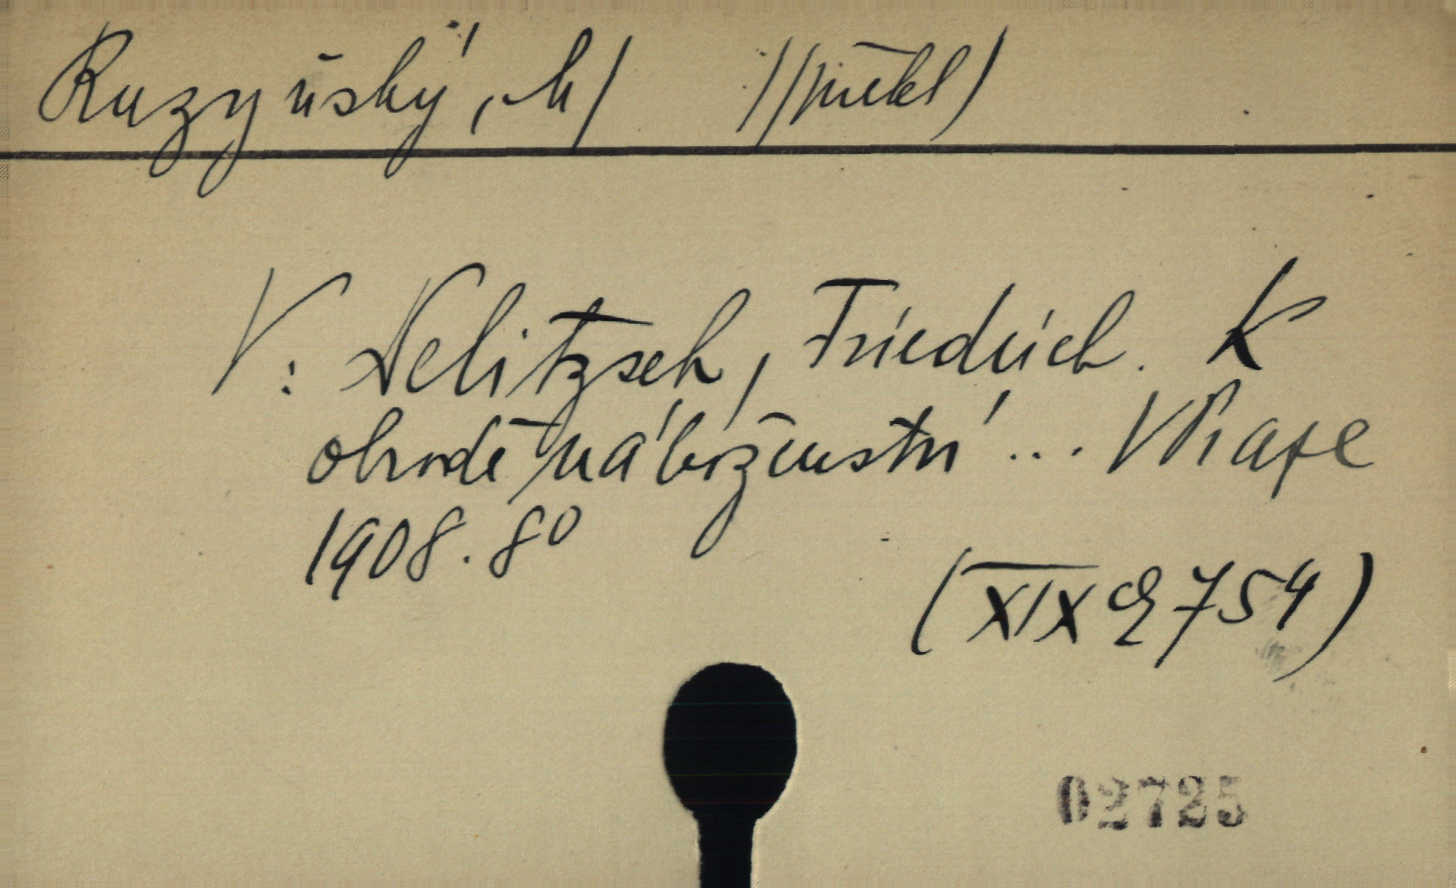 Ruzyňský, M/ //překl)
V: Delitzsch, Friedrich. K
obrodě náboženství ... V Praze
1908. 8°
(XIX E 754)
02725